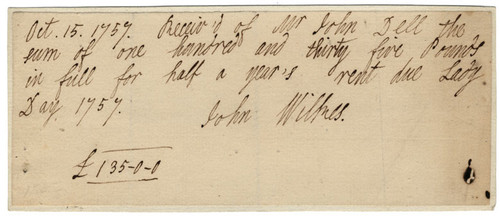 Oct. 15. 1757. Receiv'd of Mr John Dell the
sum of one hundred and thirty five Pounds
in full for half a year's rent due Lady
Day 1757.
John Wilkes.
£ 135-0-0